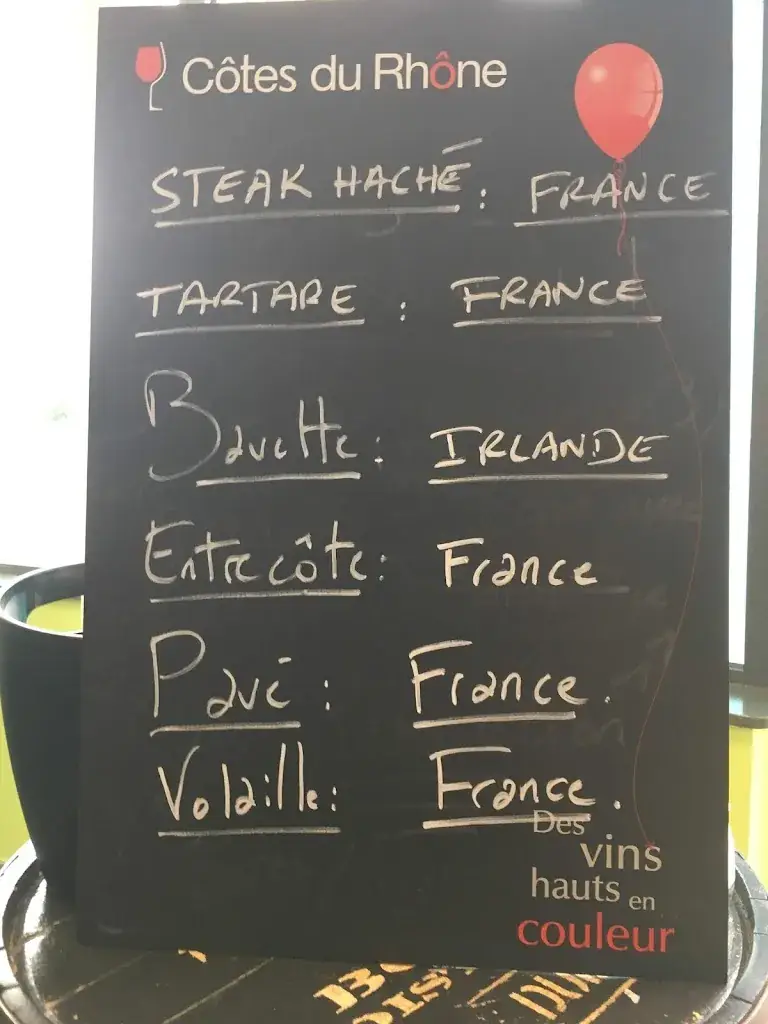 Côtes du Rhône
STEAK HACHÉ : FRANCE
TARTARE : FRANCE
Bavette : IRLANDE
Entrecôte : France
Pavé : France.
Volaille : France.
Des
vins
hauts en
couleur